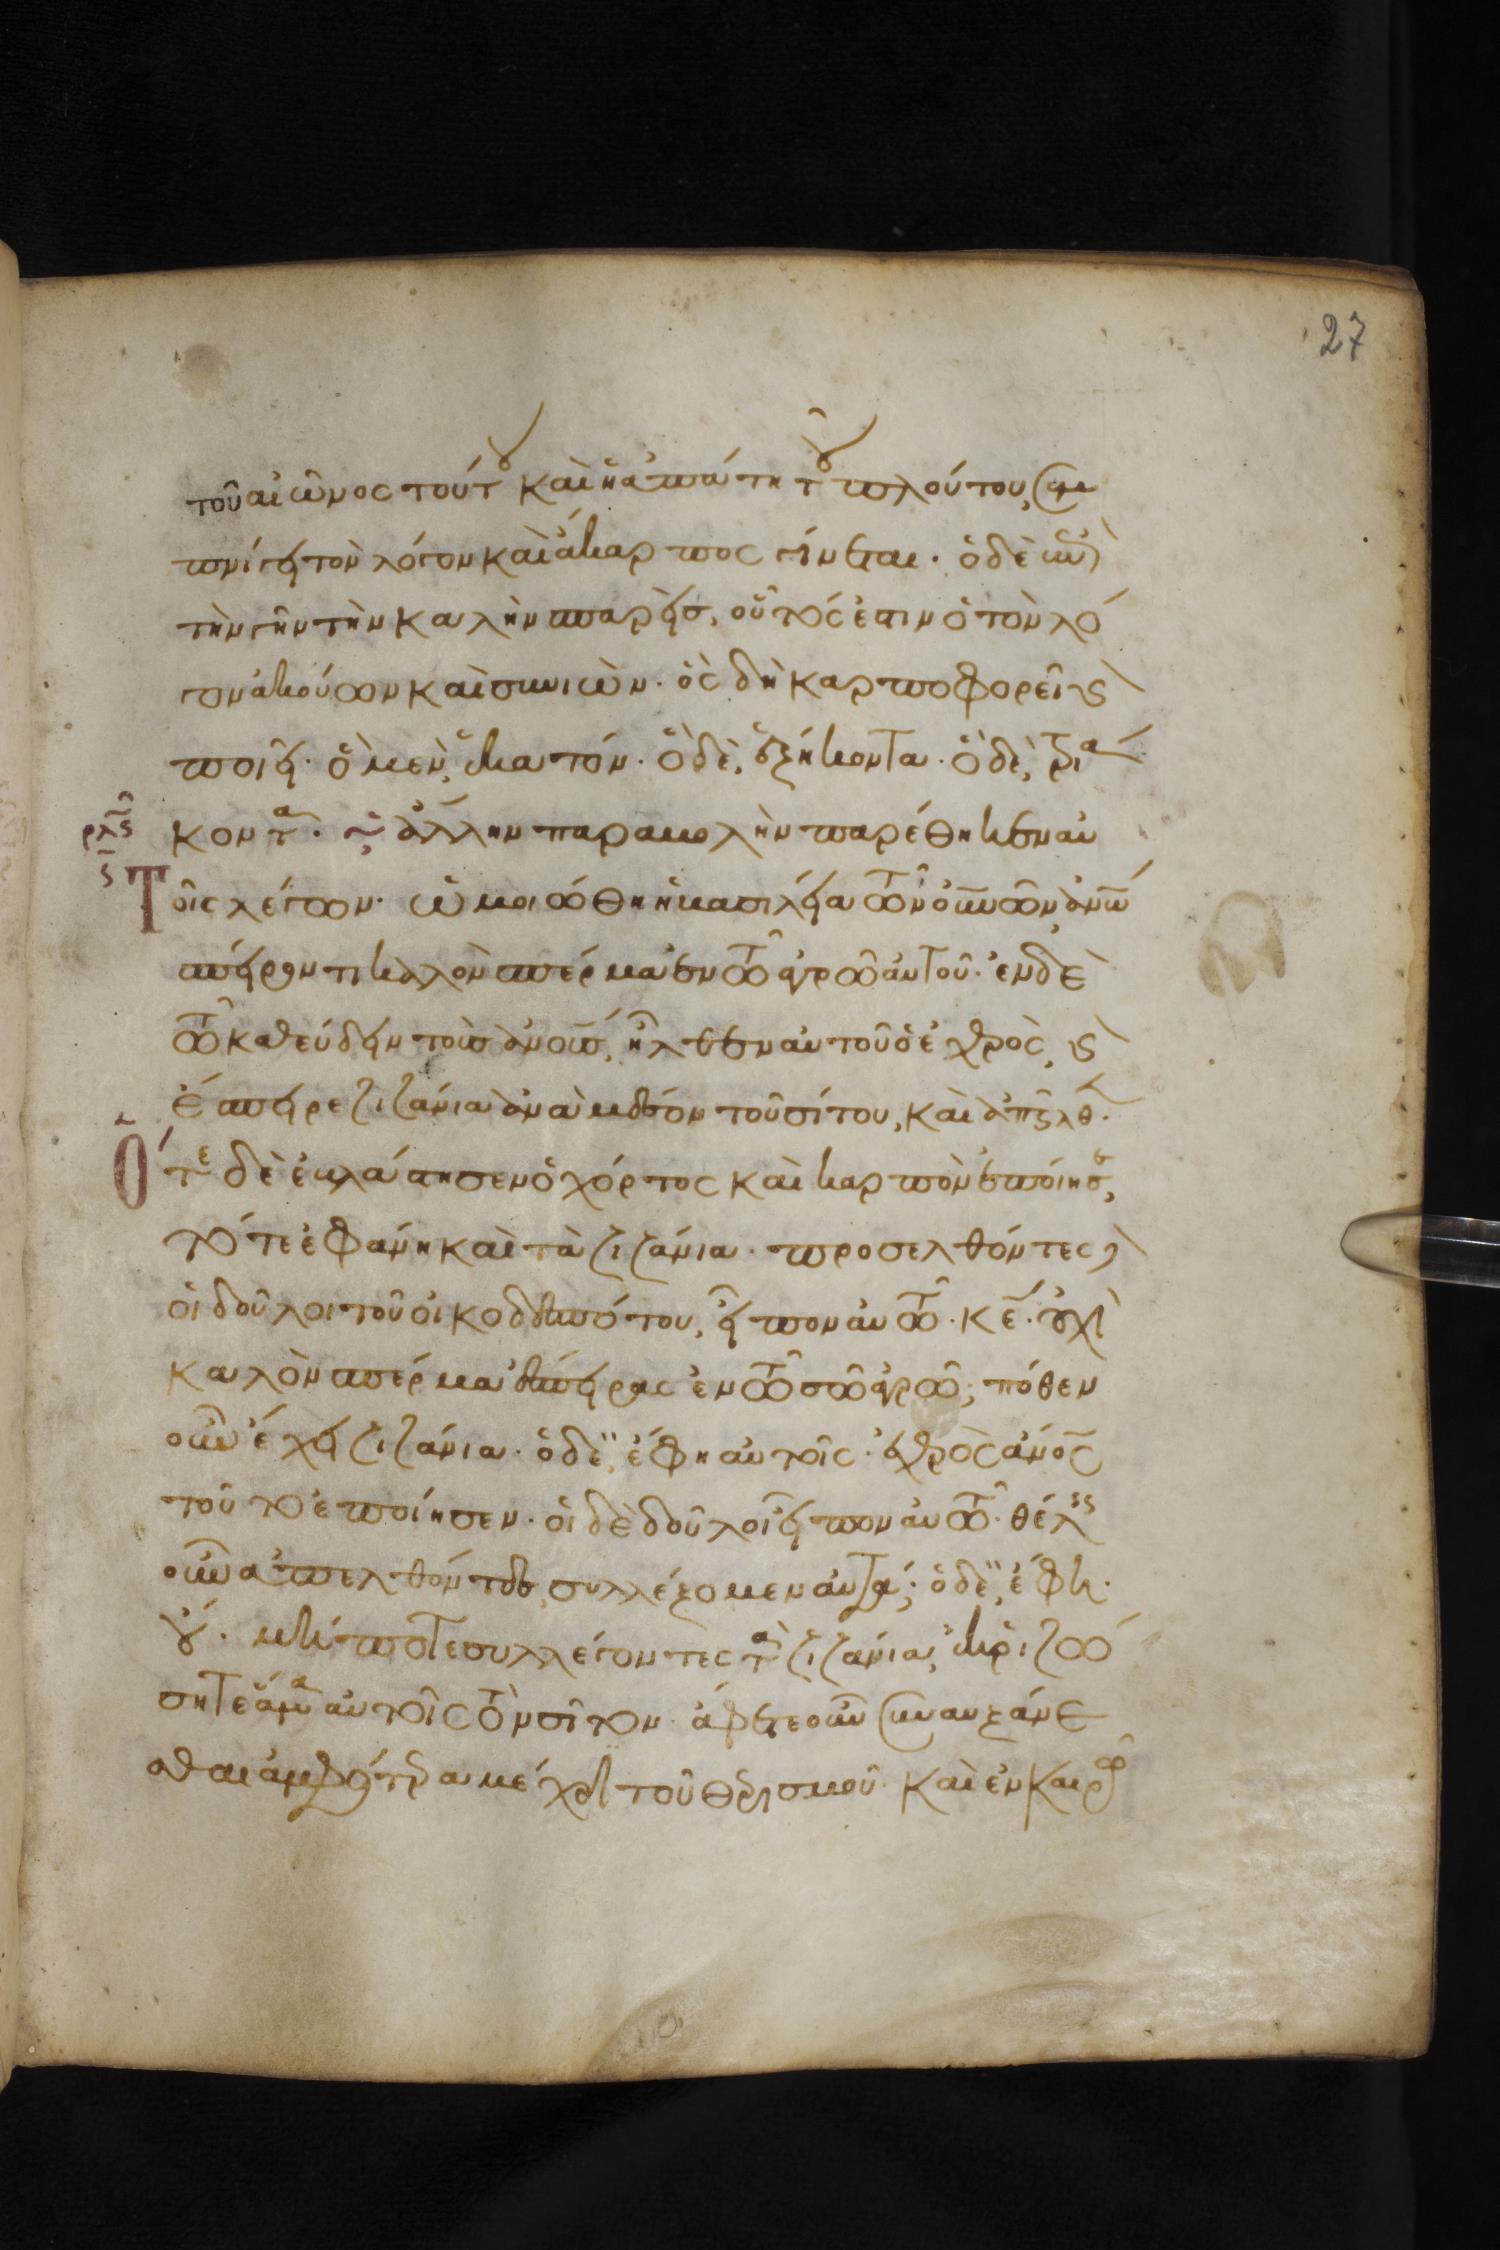 27
τοῦ αἰῶνος τούτου καὶ ἡ ἀπάτη τοῦ πλούτου, συμ
πνίγει τὸν λόγον καὶ ἄκαρπος γίνεται. ὁ δὲ ἐπὶ
τὴν γῆν τὴν καλὴν σπαρεὶς, οὗτός ἐστιν ὁ τὸν λό
γον ἀκούων καὶ συνιὼν. ὃς δὴ καρποφορεῖ ϗ
ποιεῖ. ὃ μὲν, ἑκατόν. ὃ δὲ, ἑξήκοντα. ὃ δὲ, τριά
ρλϛ κοντα. ἄλλην παραβολὴν παρέθηκεν αὐ
ϛ Τοῖς λέγων. ὡμοιώθη ἡ βασιλεία τῶν οὐνῶν ἀνω
σπείροντι καλὸν σπέρμα ἐν τῶ ἀγρῶ αὐτοῦ. ἐν δὲ
τῶ καθεύδειν τοὺς ἀνους, ἦλθεν αὐτοῦ ὁ ἐχθρὸς, ϗ
ἔσπειρε ζιζάνια ἀνὰ μέσον τοῦ σίτου, καὶ ἀπῆλθ.
Ὅτε δὲ ἐβλάστησεν ὁ χόρτος καὶ καρπὸν ἐποίησε,
τότε ἐφάνη καὶ τὰ ζιζάνια. προσελθόντες
οἱ δοῦλοι τοῦ οἰκοδεσπότου, εἶπον αὐτῶ. κε. οὐχὶ
καλὸν σπέρμα ἔσπειρας ἐν τῶ σῶ ἀγρῶ; πόθεν
οὖν ἔχει ζιζάνια. ὁ δὲ, ἔφη αὐτοῖς. ἐχθρὸς ἀνος
τοῦτο ἐποίησεν. οἱ δὲ δοῦλοι εἶπον αὐτῶ. θέλεις
οὖν ἀπελθόντες, συλλέξομεν αὐτά; ὁ δὲ, ἔφη.
οὔ. μήποτε συλλέγοντες τὰ ζιζάνια, ἐκριζώ
σητε ἅμα αὐτοῖς τὸν σῖτον. ἄφετε οὖν συναυξάνε
σθαι ἀμφότερα μέχρι τοῦ θερισμοῦ. καὶ ἐν καιρῶ